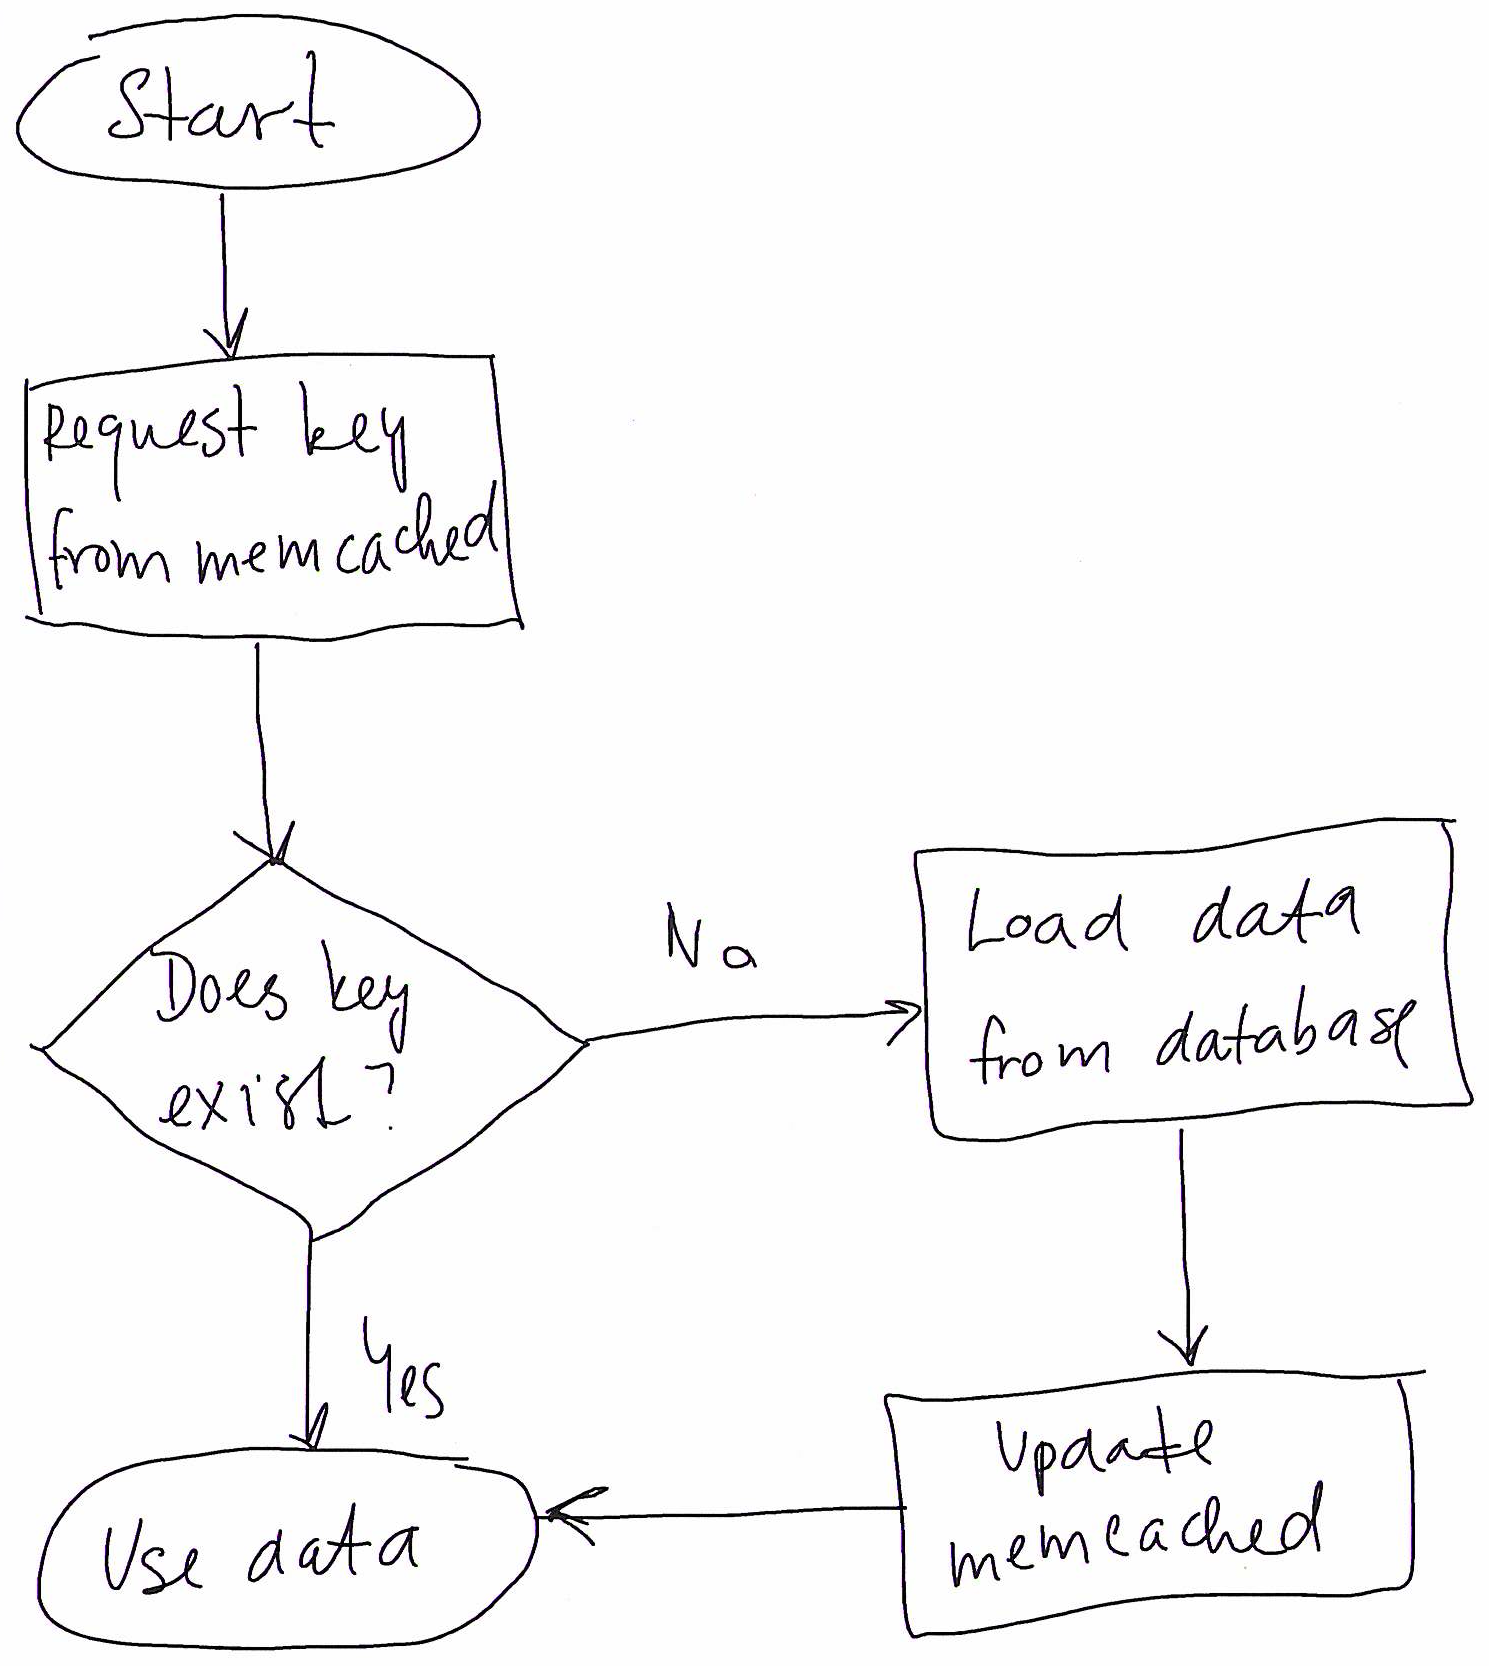 Start
Request key
from memcached
Does key
exist?
No
Load data
from database
Yes
Update
memcached
Use data